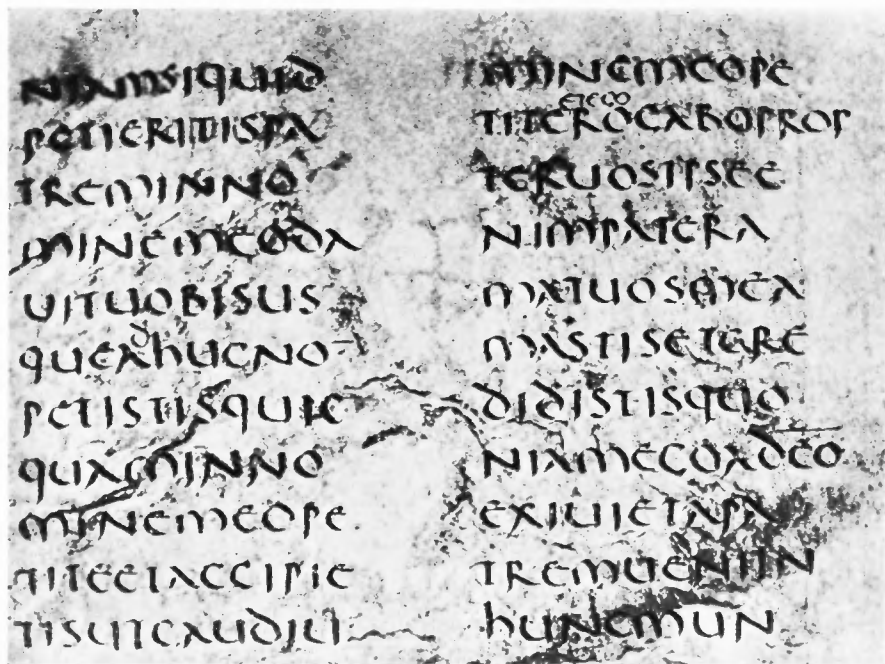 NIAMSIQUID
PETIERITISPA
TREMINNO
MINEMEODA
UITUOBISUS
QUEADhUCNO
PETISTISQUIC
QUAMINNO
MINEMEOPE
TITEETACCIPIE
TISUTGAUDIU
MINEMEOPE
etego
TITEROGABOPROP
TERUOSIPSEE
NIMPATERA
MATUOSMEA
MASTISETCRE
DIDISTISQUO
NIAMEGOADEO
EXIUIETAPA
TREMUENIIN
hUNCMUN